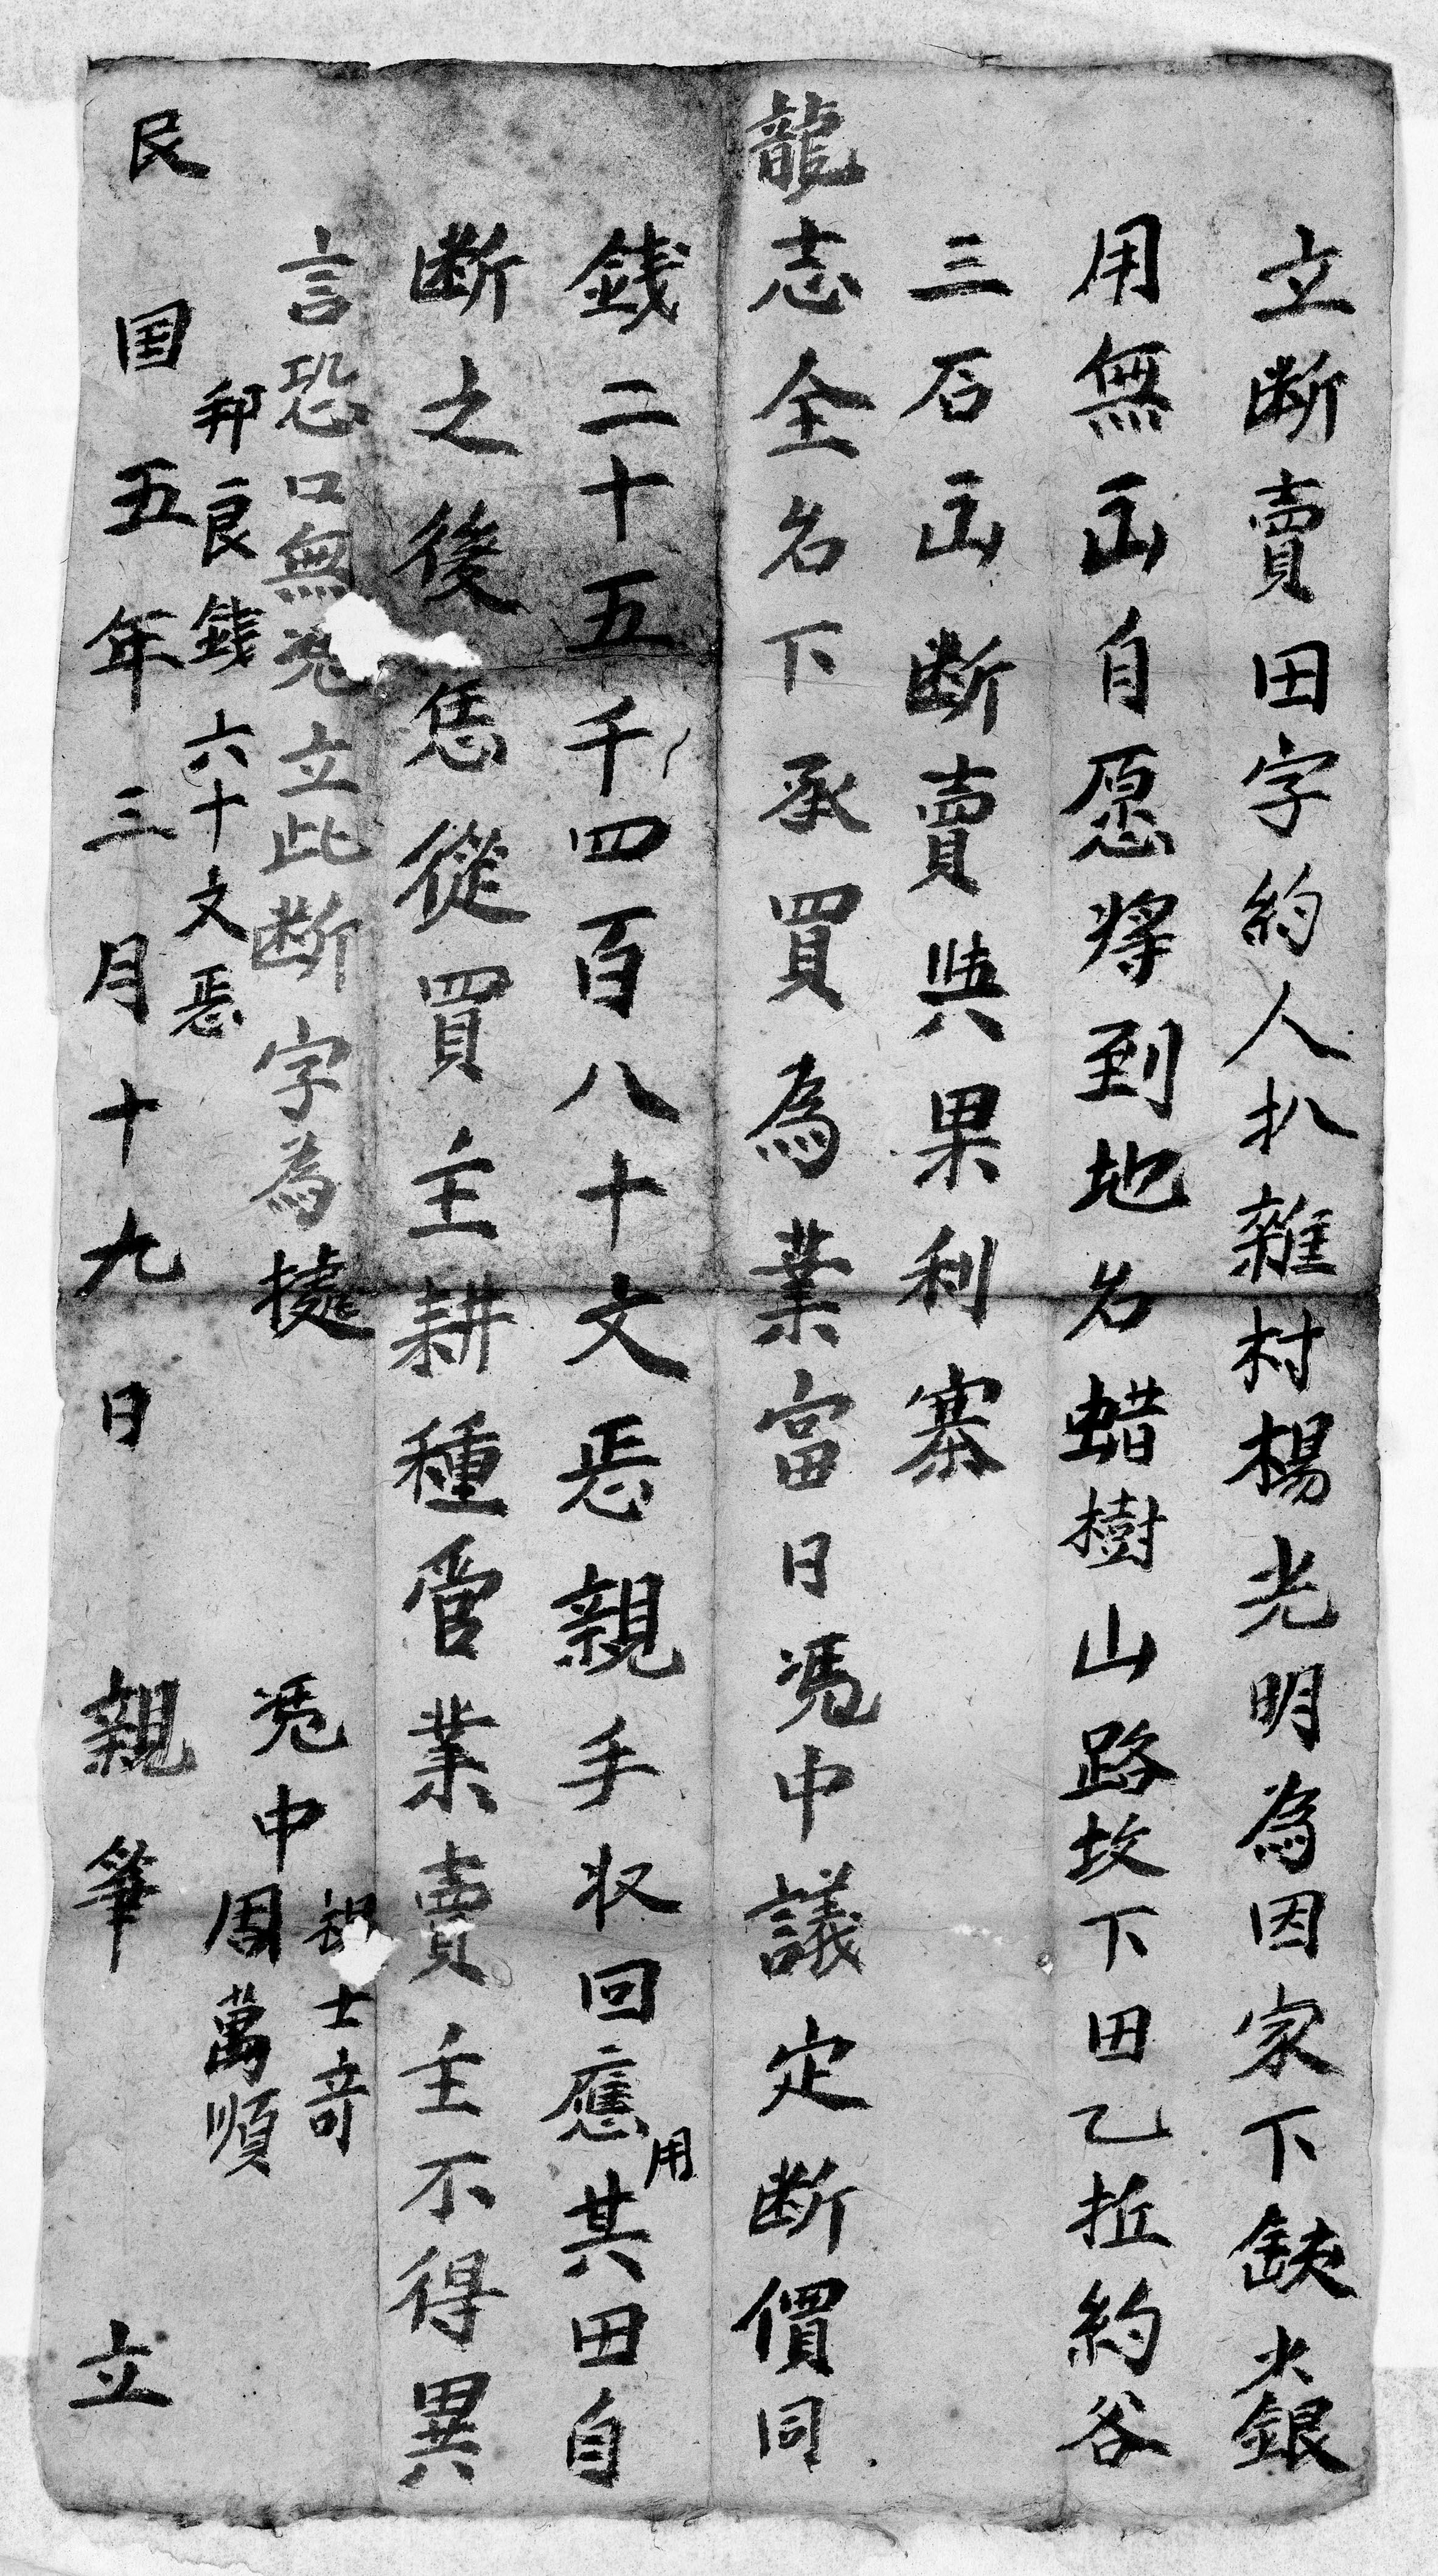 立断賣田字約人扒雜村楊光明為因家下缺少銀
用無函自愿将到地名蜡樹山路坎下田乙坵約谷
三石函断賣與果利寨
龍志全名下承買為業當日凴中議定断價同
錢二十五千四百八十文㤙親手收回應用其田自
断之後恁從買主耕種管業賣主不得異
言恐口無凴立此断字為據
凴中 士奇
周萬順
邦良錢六十文㤙
民国五年三月十九日 親筆 立